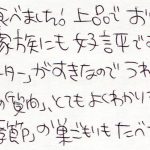 食べました。上品でお
家族にも好評で
ター」がすきなので うれ
の質問」、とても よくわかりま
節」の巣ごもりもたべ